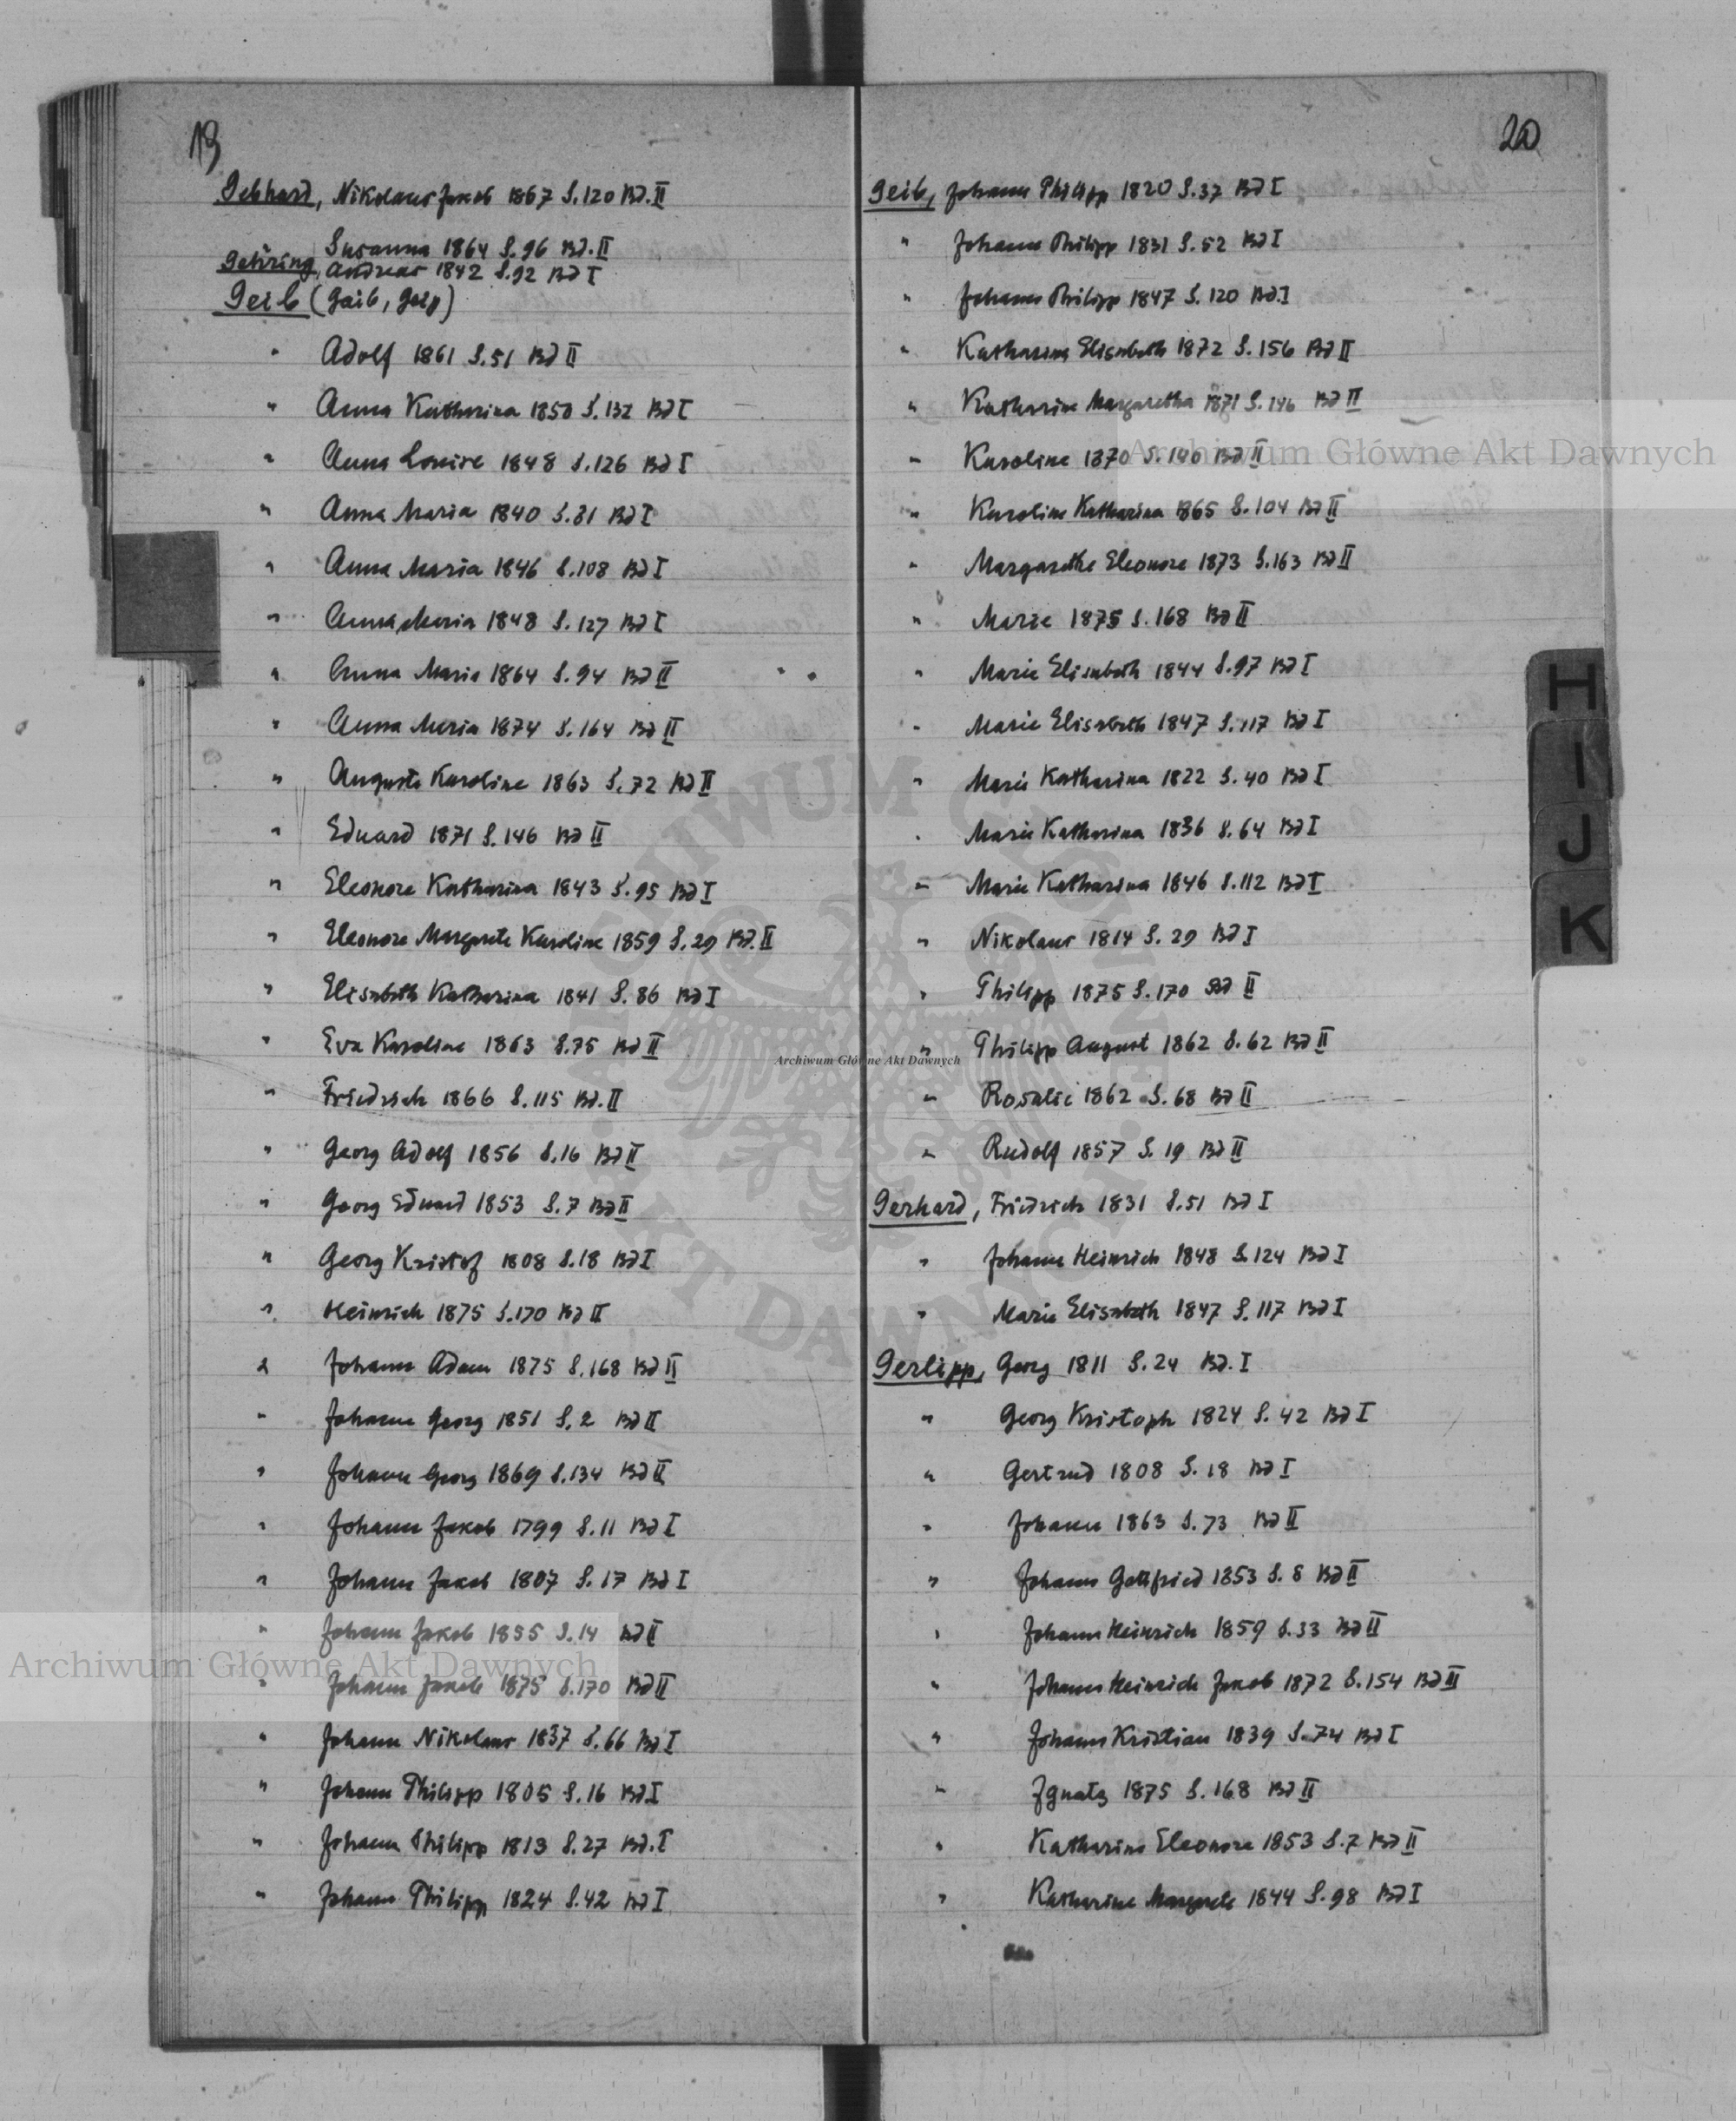 19
Gebhard, Nikolaus Jakob 1867 S.120 Bd.II
Susanna 1864 S.96 Bd.II
Gehring, Andreas 1842 S.92 Bd I
Geib (Gaib, Geip)
" Adolf 1861 S.51 Bd II
" Anna Katharina 1850 S.132 Bd I
" Anna Louise 1848 S.126 Bd I
" Anna Maria 1840 S.81 Bd I
" Anna Maria 1846 S.108 Bd I
" Anna Maria 1848 S.127 Bd I
" Anna Maria 1864 S.94 Bd II
" Anna Maria 1874 S.164 Bd II
" Auguste Karoline 1863 S.72 Bd II
" Eduard 1871 S.146 Bd II
" Eleonore Katharina 1843 S.95 Bd I
" Eleonore Margarete Karoline 1859 S.29 Bd.II
" Elisabeth Katharina 1841 S.86 Bd I
" Eva Karoline 1863 S.75 Bd II
" Friedrich 1866 S.115 Bd.II
" Georg Adolf 1856 S.16 Bd II
" Georg Eduard 1853 S.7 Bd II
" Georg Kristof 1808 S.18 Bd I
" Heinrich 1875 S.170 Bd II
" Johann Adam 1875 S.168 Bd II
" Johann Georg 1851 S.2 Bd II
" Johann Georg 1869 S.134 Bd II
" Johann Jakob 1799 S.11 Bd I
" Johann Jakob 1807 S.17 Bd I
" Johann Jakob 1855 S.14 Bd II
" Johann Jakob 1875 S.170 Bd II
" Johann Nikolaus 1837 S.66 Bd I
" Johann Philipp 1805 S.16 Bd.I
" Johann Philipp 1813 S.27 Bd.I
" Johann Philipp 1824 S.42 Bd I
20
Geib, Johann Philipp 1820 S.37 Bd I
" Johann Philipp 1831 S.52 Bd I
" Johann Philipp 1847 S.120 Bd.I
" Katharina Elisabeth 1872 S.156 Bd II
" Katharina Margaretha 1871 S.146 Bd II
" Karoline 1870 S.140 Bd II
" Karoline Katharina 1865 S.104 Bd II
" Margarethe Eleonore 1873 S.163 Bd II
" Marie 1875 S.168 Bd II
" Marie Elisabeth 1844 S.97 Bd I
" Marie Elisabeth 1847 S.117 Bd I
" Marie Katharina 1822 S.40 Bd I
" Marie Katharina 1836 S.64 Bd I
" Marie Katharina 1846 S.112 Bd I
" Nikolaus 1814 S.29 Bd I
" Philipp 1875 S.170 Bd II
" Philipp August 1862 S.62 Bd II
" Rosalie 1862 S.68 Bd II
" Rudolf 1857 S.19 Bd II
Gerhard, Friedrich 1831 S.51 Bd I
" Johann Heinrich 1848 S.124 Bd I
" Marie Elisabeth 1847 S.117 Bd I
Gerlipp, Georg 1811 S.24 Bd.I
" Georg Kristoph 1824 S.42 Bd I
" Gertrud 1808 S.18 Bd I
" Johann 1863 S.73 Bd II
" Johann Gottfried 1853 S.8 Bd II
" Johann Heinrich 1859 S.33 Bd II
" Johann Heinrich Jakob 1872 S.154 Bd II
" Johann Kristian 1839 S.74 Bd I
" Ignatz 1875 S.168 Bd II
" Katharina Eleonore 1853 S.7 Bd II
" Katharina Margarete 1844 S.98 Bd I
H
I
J
K
Archiwum Główne Akt Dawnych
Archiwum Główne Akt Dawnych
Archiwum Główne Akt Dawnych
ARCHIWUM GŁÓWNE AKT DAWNYCH